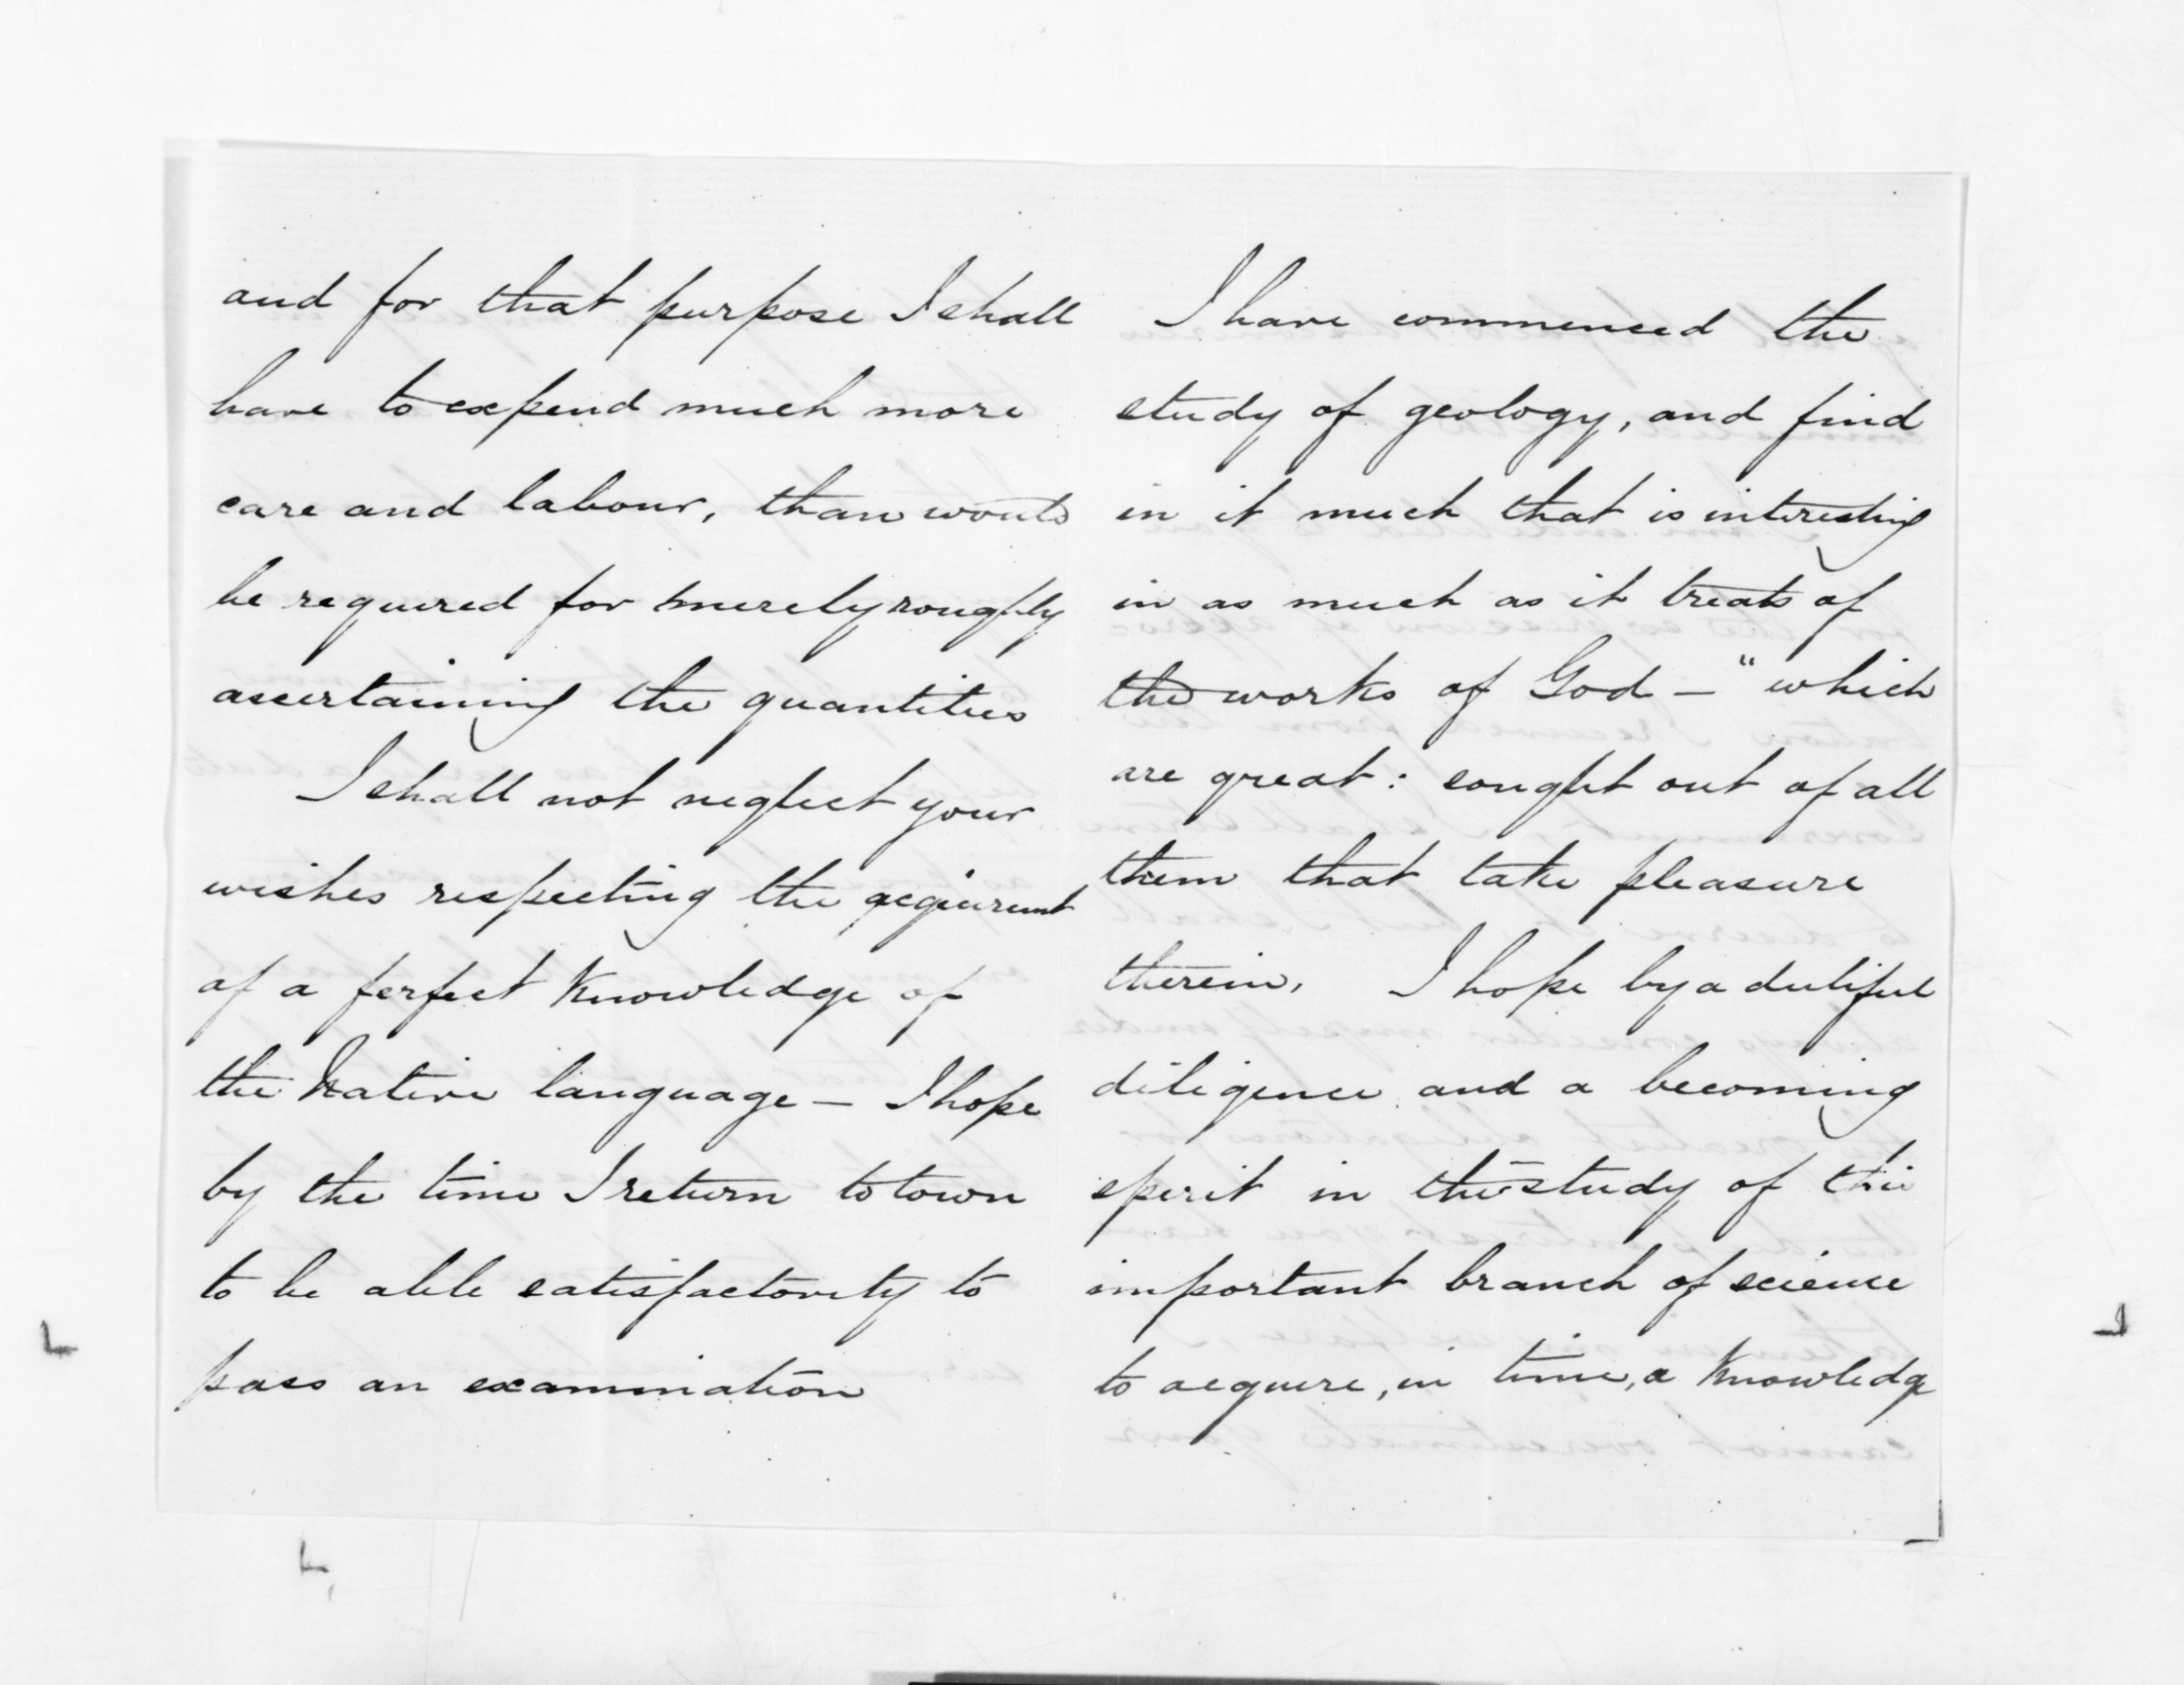 and for that purpose I shall
have to expend much more
care and labour, than would
be required for merely roughly
ascertaining the quantities
I shall not neglect your
wishes respecting the acquirement
of a perfect knowledge of
the Native language – I hope
by the time I return to town
to be able satisfactorily to
pass an examination
I have commenced the
study of geology, and find
in it much that is interesting
in as much as it treats of
the works of God – "which
are great: sought out of all
them that take pleasure
therein. I hope by a dutiful
diligence and a becoming
spirit in the study of this
important branch of science
to acquire, in time, a knowledge